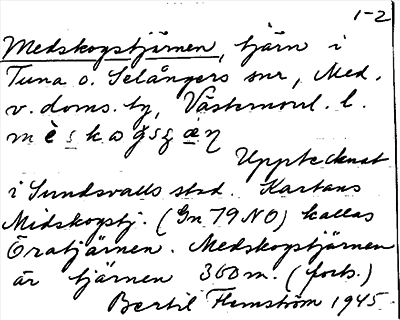 1-2
Medskogstjärnen, tjärn i
Tuna o. Selångers snr, Med.
v. doms. by, Västernorrl. l.
Upptecknat
i Sundsvalls stad. Kartans
Midskogstj. (Gn 79 NO) kallas
Öratjärnen. Medskogstjärnen
är tjärnen 360 m. (forts.)
Bertil Flemström 1945